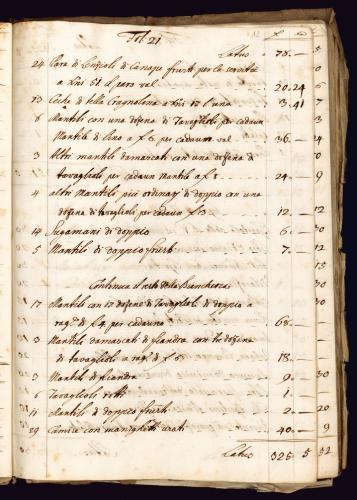 Fol. 21
Latus .. 78 .. 5
24 Para di Linzoli di Canapo frusti per la servitù
a L ni 51 il paro val .. 20.24
13 di tella Cragnolina a L ni 17 l'uno .. 3.41
8 Mantili con una dozena di Tavaglioli per cadaun
Mantile di lino a f 6 per cadaun val .. 36. —
3 Altri mantili damascati con una dozena di
tavaglioli per cadaun Mantile a f 8 .. 24. —
4 altri Mantili più ordinarj di doppio con una
dozena di tavaglioli per cadaun f 3 .. 12. —
14 Sugamani di doppio .. 6. —
5 Mantili di doppio frusti .. 7. —
Continua il resto della Biancheria
17 Mantili con 17 dozene di Tavaglioli di doppio a
rag.e di f 4 per cadauno .. 68. —
3 Mantili damascati di fiandra con tre dozene
di tavaglioli a rag.e di f 6 .. 18. —
3 Mantili di fiandra .. 9. —
6 Tavaglioli rotti .. 1. —
11 Mantili di doppio frusti .. 2. —
29 Camise con manighetti usati .. 40. —
Latus 325 5